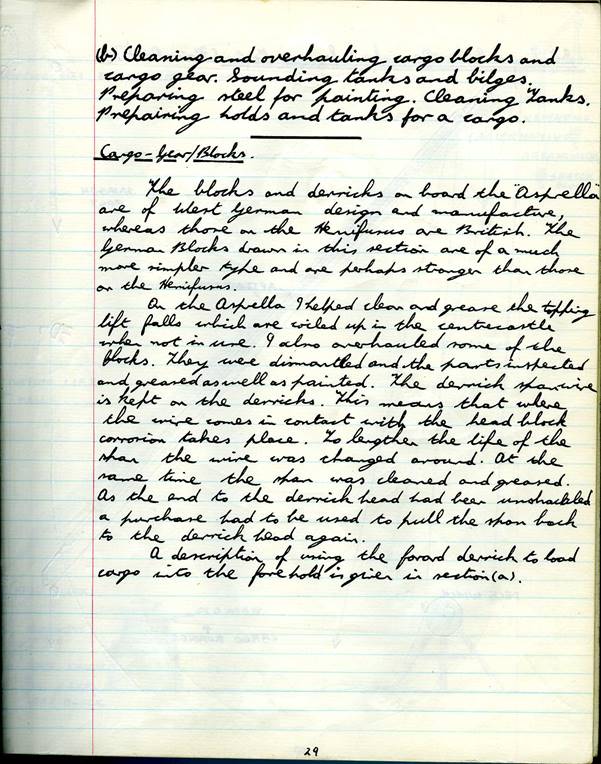 (b) Cleaning and overhauling cargo blocks and
cargo gear. Sounding tanks and bilges.
Preparing steel for painting. Cleaning Tanks.
Prepairing holds and tanks for a cargo.
Cargo-Gear/Blocks.
The blocks and derricks on board the "Asprella"
are of West German design and manufacture,
whereas those on the Hemifusus are British. The
German Blocks drawn in this section are of a much
more simpler type and are perhaps stronger than those
on the Hemifusus.
On the Asprella I helped clean and grease the topping
lift falls which are coiled up in the centrecastle
when not in use. I also overhauled some of the
blocks. They were dismantled and the parts inspected
and greased as well as painted. The derrick span wire
is kept on the derricks. This means that where
the wire comes in contact with the head block
corrosion takes place. To lengthen the life of the
span the wire was changed around. At the
same time the span was cleaned and greased.
As the end to the derrick head had been unshackled
a purchase had to be used to pull the span back
to the derrick head again.
A description of using the forard derrick to load
cargo into the forehold is given in section (a).
29